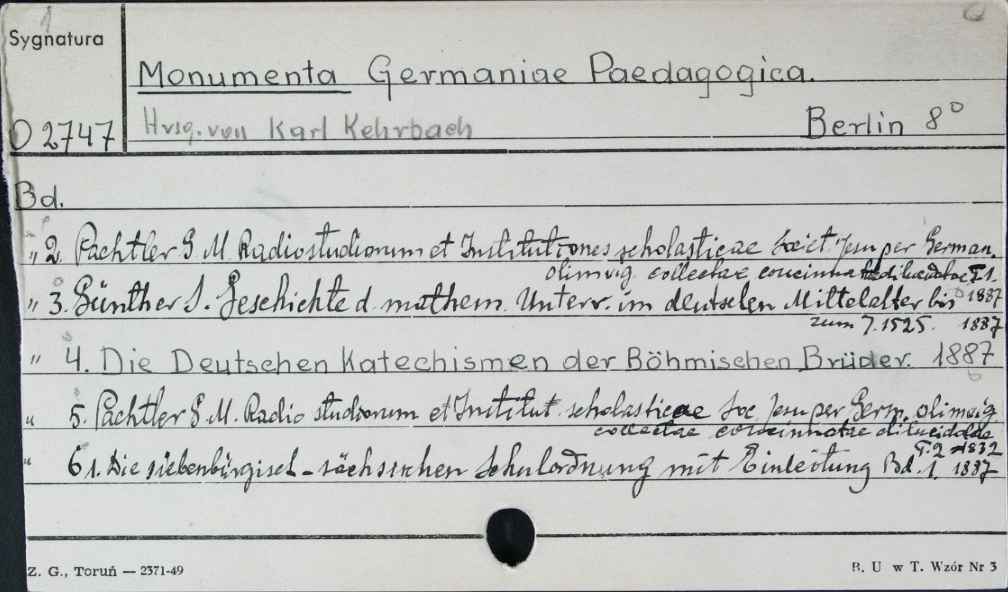 Sygnatura
Monumenta Germaniae Paedagogica.
O 2747
Hrsg. von Karl Kehrbach
Berlin 8°
Bd.
„ 2. Pachtler G M Radiostudiorum et Institutiones scholasticae Societ Jesu per German.
olim vig. collectae concinnatae dilucidatae T 1.
1887
„ 3. Günther S. Geschichte d. mathem. Unterr. im deutschen Mittelalter bis
zum J. 1525. 1887
„ 4. Die Deutschen Katechismen der Böhmischen Brüder. 1887
„ 5. Pachtler G M. Radio studiorum et Institut scholasticae Soc Jesu per Germ. olim vig
collectae concinnatae dilucidatae
T. 2
„ 6 1. Die siebenbürgisch-sächsischen Schulordnung mit Einleitung Bd. 1. 1887
Z. G., Toruń — 2371-49
B. U w T. Wzór Nr 3